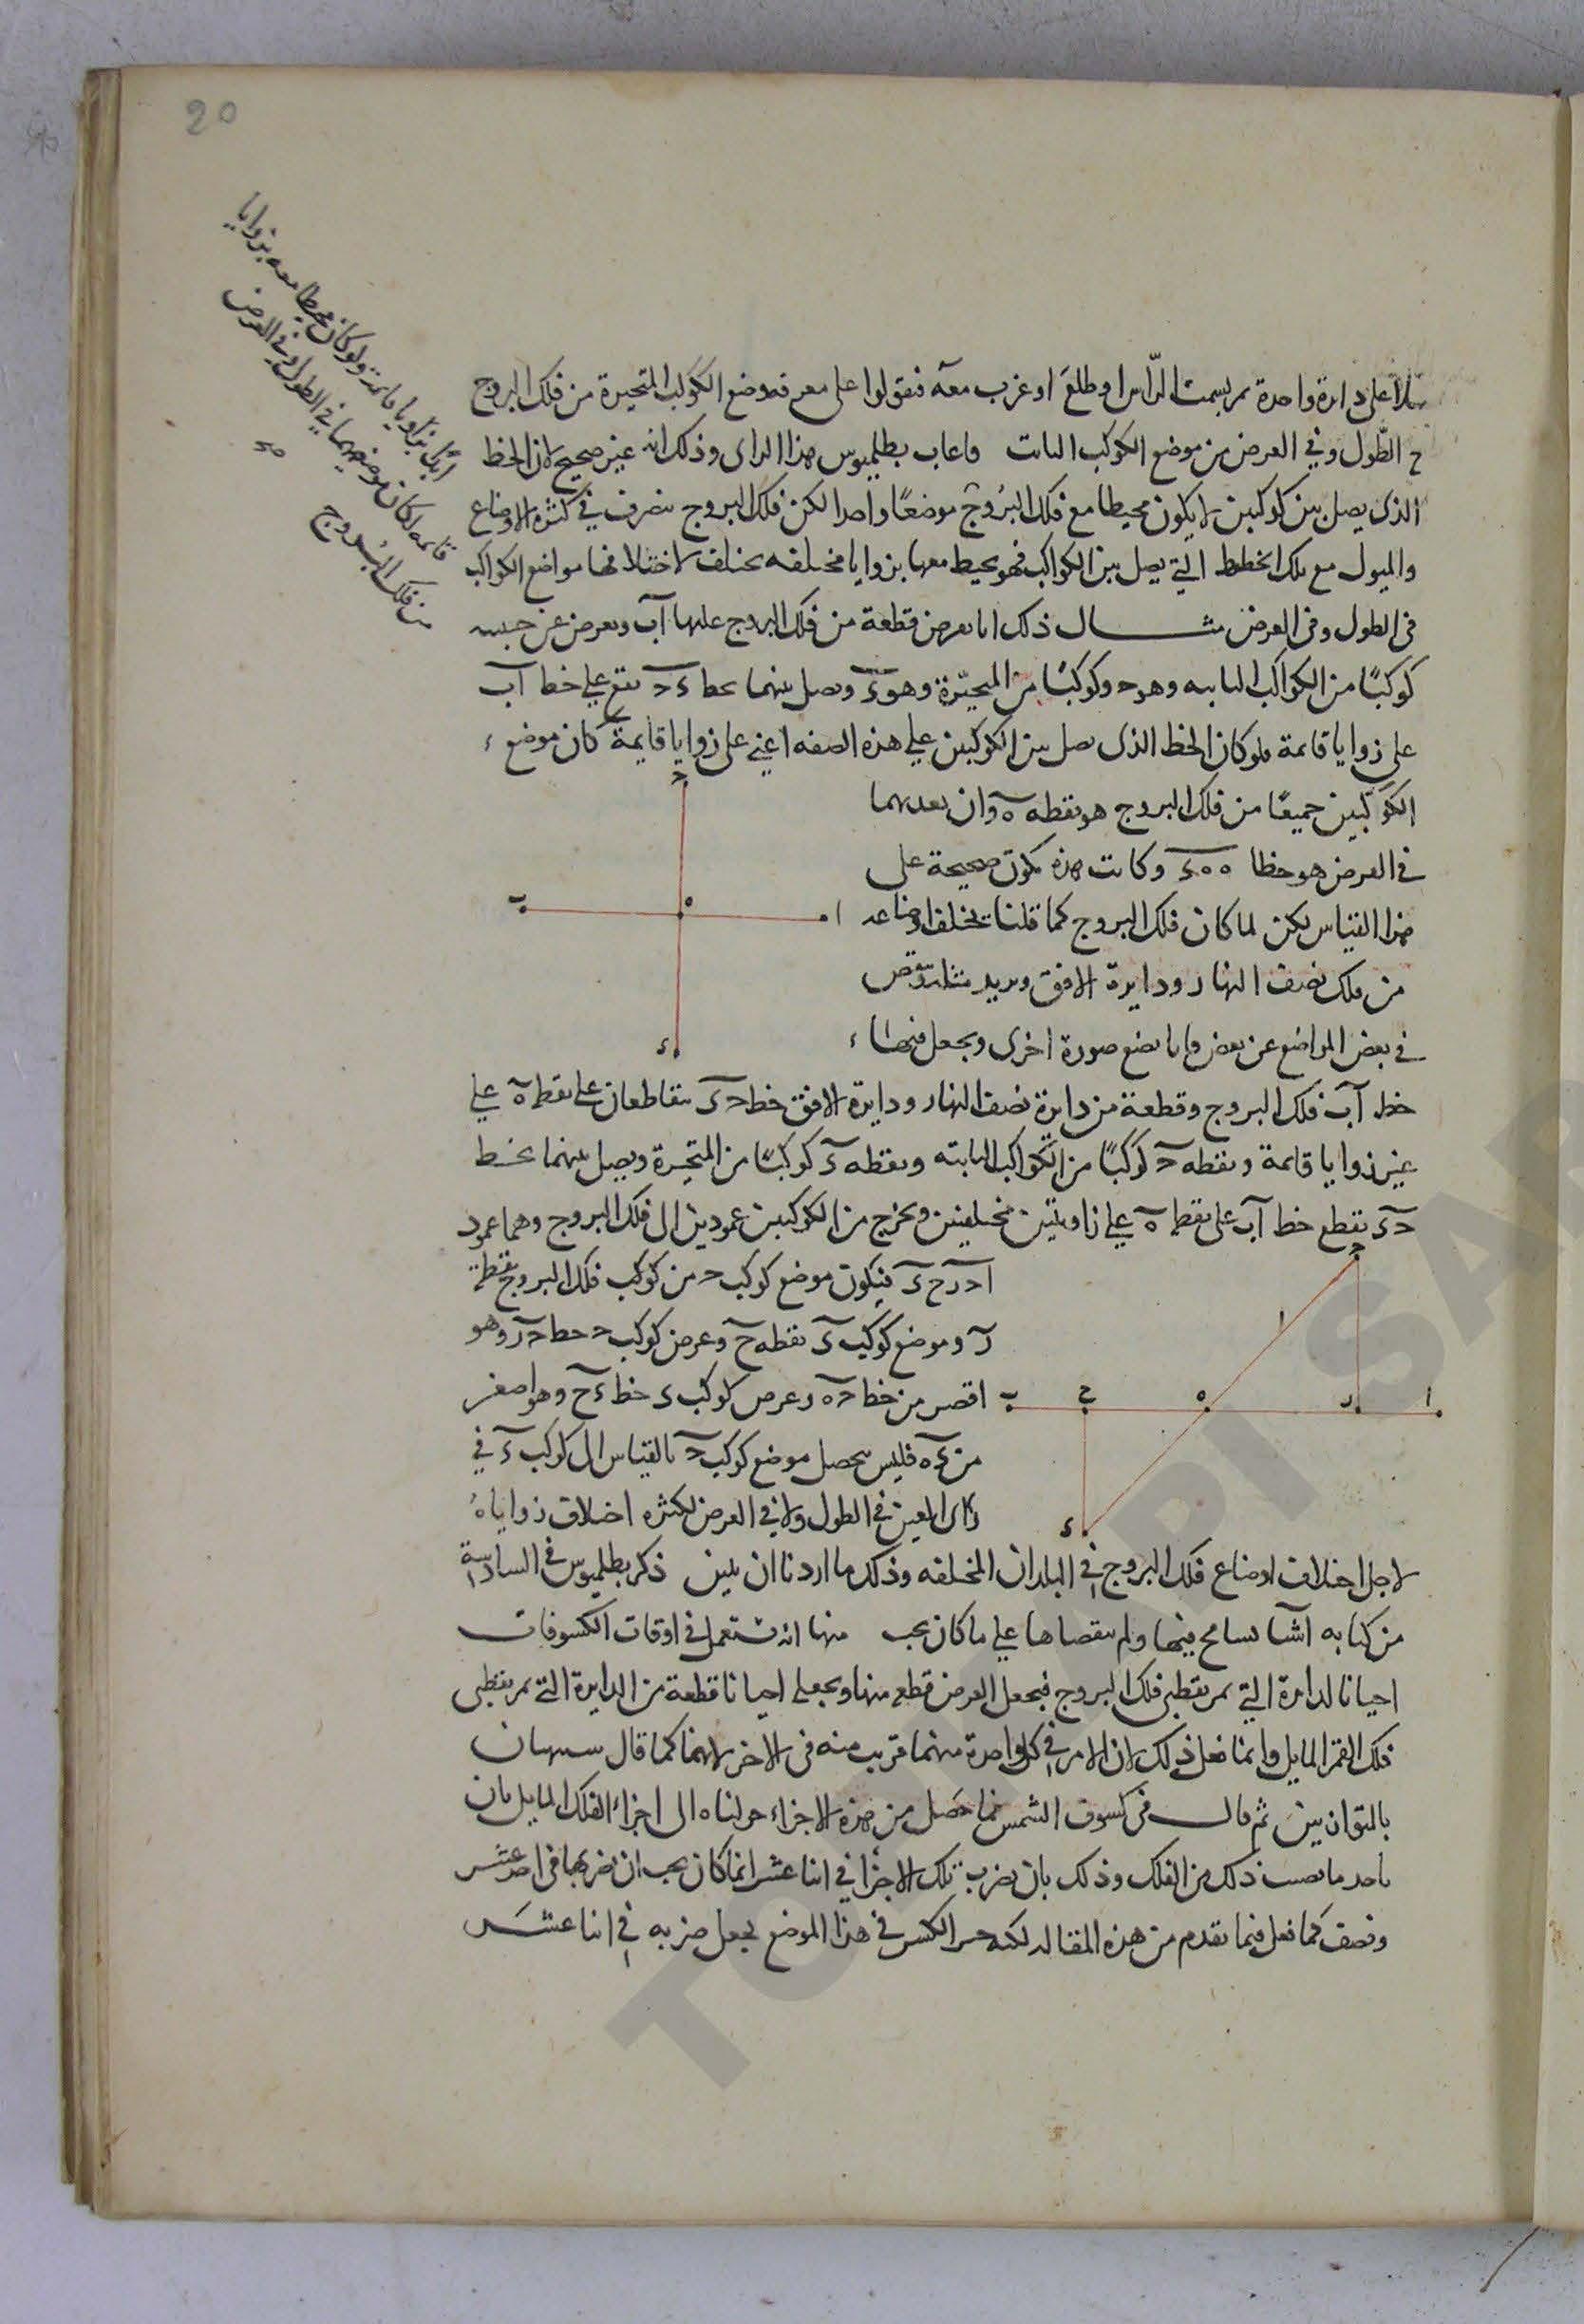 20
على دائرة واحدة تمر بسمت الراس او طلع او غرب معه فيقولوا على معرفة وضع الكوكب المتحيرة من فلك البروج
الطول وفي العرض من موضع الكوكب الثابت فاعاب بطلميوس هذا الراى وذلك انه غير صحيح لان الخط
الذى يصل بين كوكبين لا يكون محيطا مع فلك البروج موضعًا واحدا لكن فلك البروج يتصرف في كثرة الاوضاع
والميول مع تلك الخطوط التي يصل بين الكواكب فهو يحيط معها بزوايا مختلفه يختلف لاختلافها مواضع الكواكب
فى الطول وفى العرض مثــال ذلك انا نعرض قطعة من فلك البروج عليها آب ونعرض عن جنبيه
كوكبًا من الكواكب الثابته وهو ح وكوكبًا من المتحيّرة وهو ء ونصل بينهما بخط ء ح يقع على خط آب
على زوايا قائمة فلو كان الخط الذى يصل بين الكوكبين على هذه الصفه اعني على زوايا قايمة كان موضع
الكوكبين جميعًا من فلك البروج هو نقطه ه وان بعديهما
في العرض هو خطا ه ه ء وكانت هذه تكون صحيحة على
هذا القياس لكن لما كان فلك البروج كما قلنا تختلف اوضاعه
من فلك نصف النهار ودايرة الافق ويزيد مثلا وينقص
في بعض المواضع عن بعض فانا نضع صورة اخرى ونجعل فيها
خط آب فلك البروج وقطعة من دايرة نصف النهار ودايرة الافق خط ح ء يتقاطعان على نقطه ه على
غير زوايا قائمة ونقطه ح كوكبًا من الكواكب الثابته ونقطه ء كوكبًا من المتحيرة ونصل بينهما بخط
ح ء يقطع خط آب على نقطه ه على زاويتين مختلفتين ونخرج من الكوكبين عمودين الى فلك البروج وهما عمود
ا ح ر ح ء فيكون موضع كوكب ح من كوكب فلك البروج نقطة
ر وموضع كوكب ء نقطه ح وعرض كوكب ح خط ح ر وهو
اقصر من خط ح ه وعرض كوكب ء خط ء ح وهو اصغر
من ء ه فليس يحصل موضع كوكب ح بالقياس الى كوكب ء في
راى العين في الطول ولا في العرض لكثره اختلاف زواياه
لاجل اختلاف اوضاع فلك البروج في البلدان المختلفه وذلك ما اردنا ان نبين ذكر بطلميوس في السادسة
من كتابه اشيا تسامح فيها ولم يتقصاها على ما كان يجب منها انه يستعمل في اوقات الكسوفات
احيانا الدايرة التي تمر بقطبى فلك البروج فيجعل العرض قطع منها ويجعل احيانا قطعة من الدايرة التي تمر بقطبى
فلك القمر المايل وانما فعل ذلك لان الامر في كل واحدة منهما قريب منه فى الاخر لانهما كما قال شبيهان
بالمتوازيين ثم قال فى كسوف الشمس فما حصل من هذه الاجزاء حولناه الى اجزاء الفلك المايل بان
ناخذ ما يصيب ذلك من الفلك وذلك بان يضرب تلك الاجزا في اثنا عشر انما كان يجب ان يضربها فى احد عشر
ونصف كما فعل فيما تقدم من هذه المقاله لكنه جبر الكسر في هذا الموضع فجعل ضربه في اثنا عشر
من فلك البروج
ح
ب
ه
ا
ء
ح
ا
ب
ح
ه
ر
ا
ء
TOPKAPI SARA